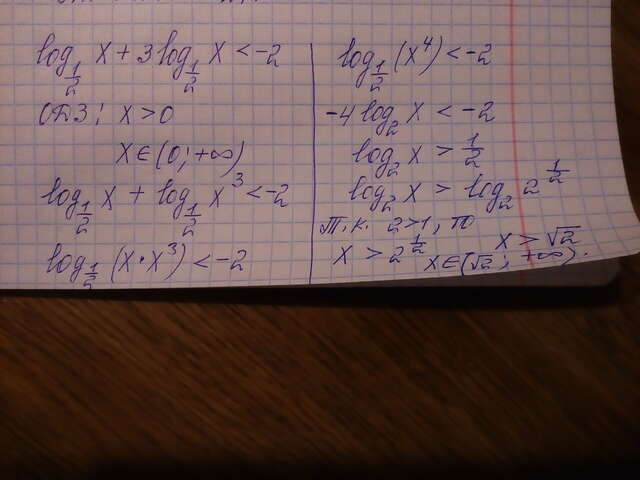 log_{1/2} x + 3 log_{1/2} x < -2
ОДЗ: x > 0
x ∈ (0; +∞)
log_{1/2} x + log_{1/2} x³ < -2
log_{1/2} (x · x³) < -2
log_{1/2} (x⁴) < -2
-4 log₂ x < -2
log₂ x > 1/2
log₂ x > log₂ 2^{1/2}
Т.к. 2 > 1, то
x > 2^{1/2} x > √2
x ∈ (√2; +∞).